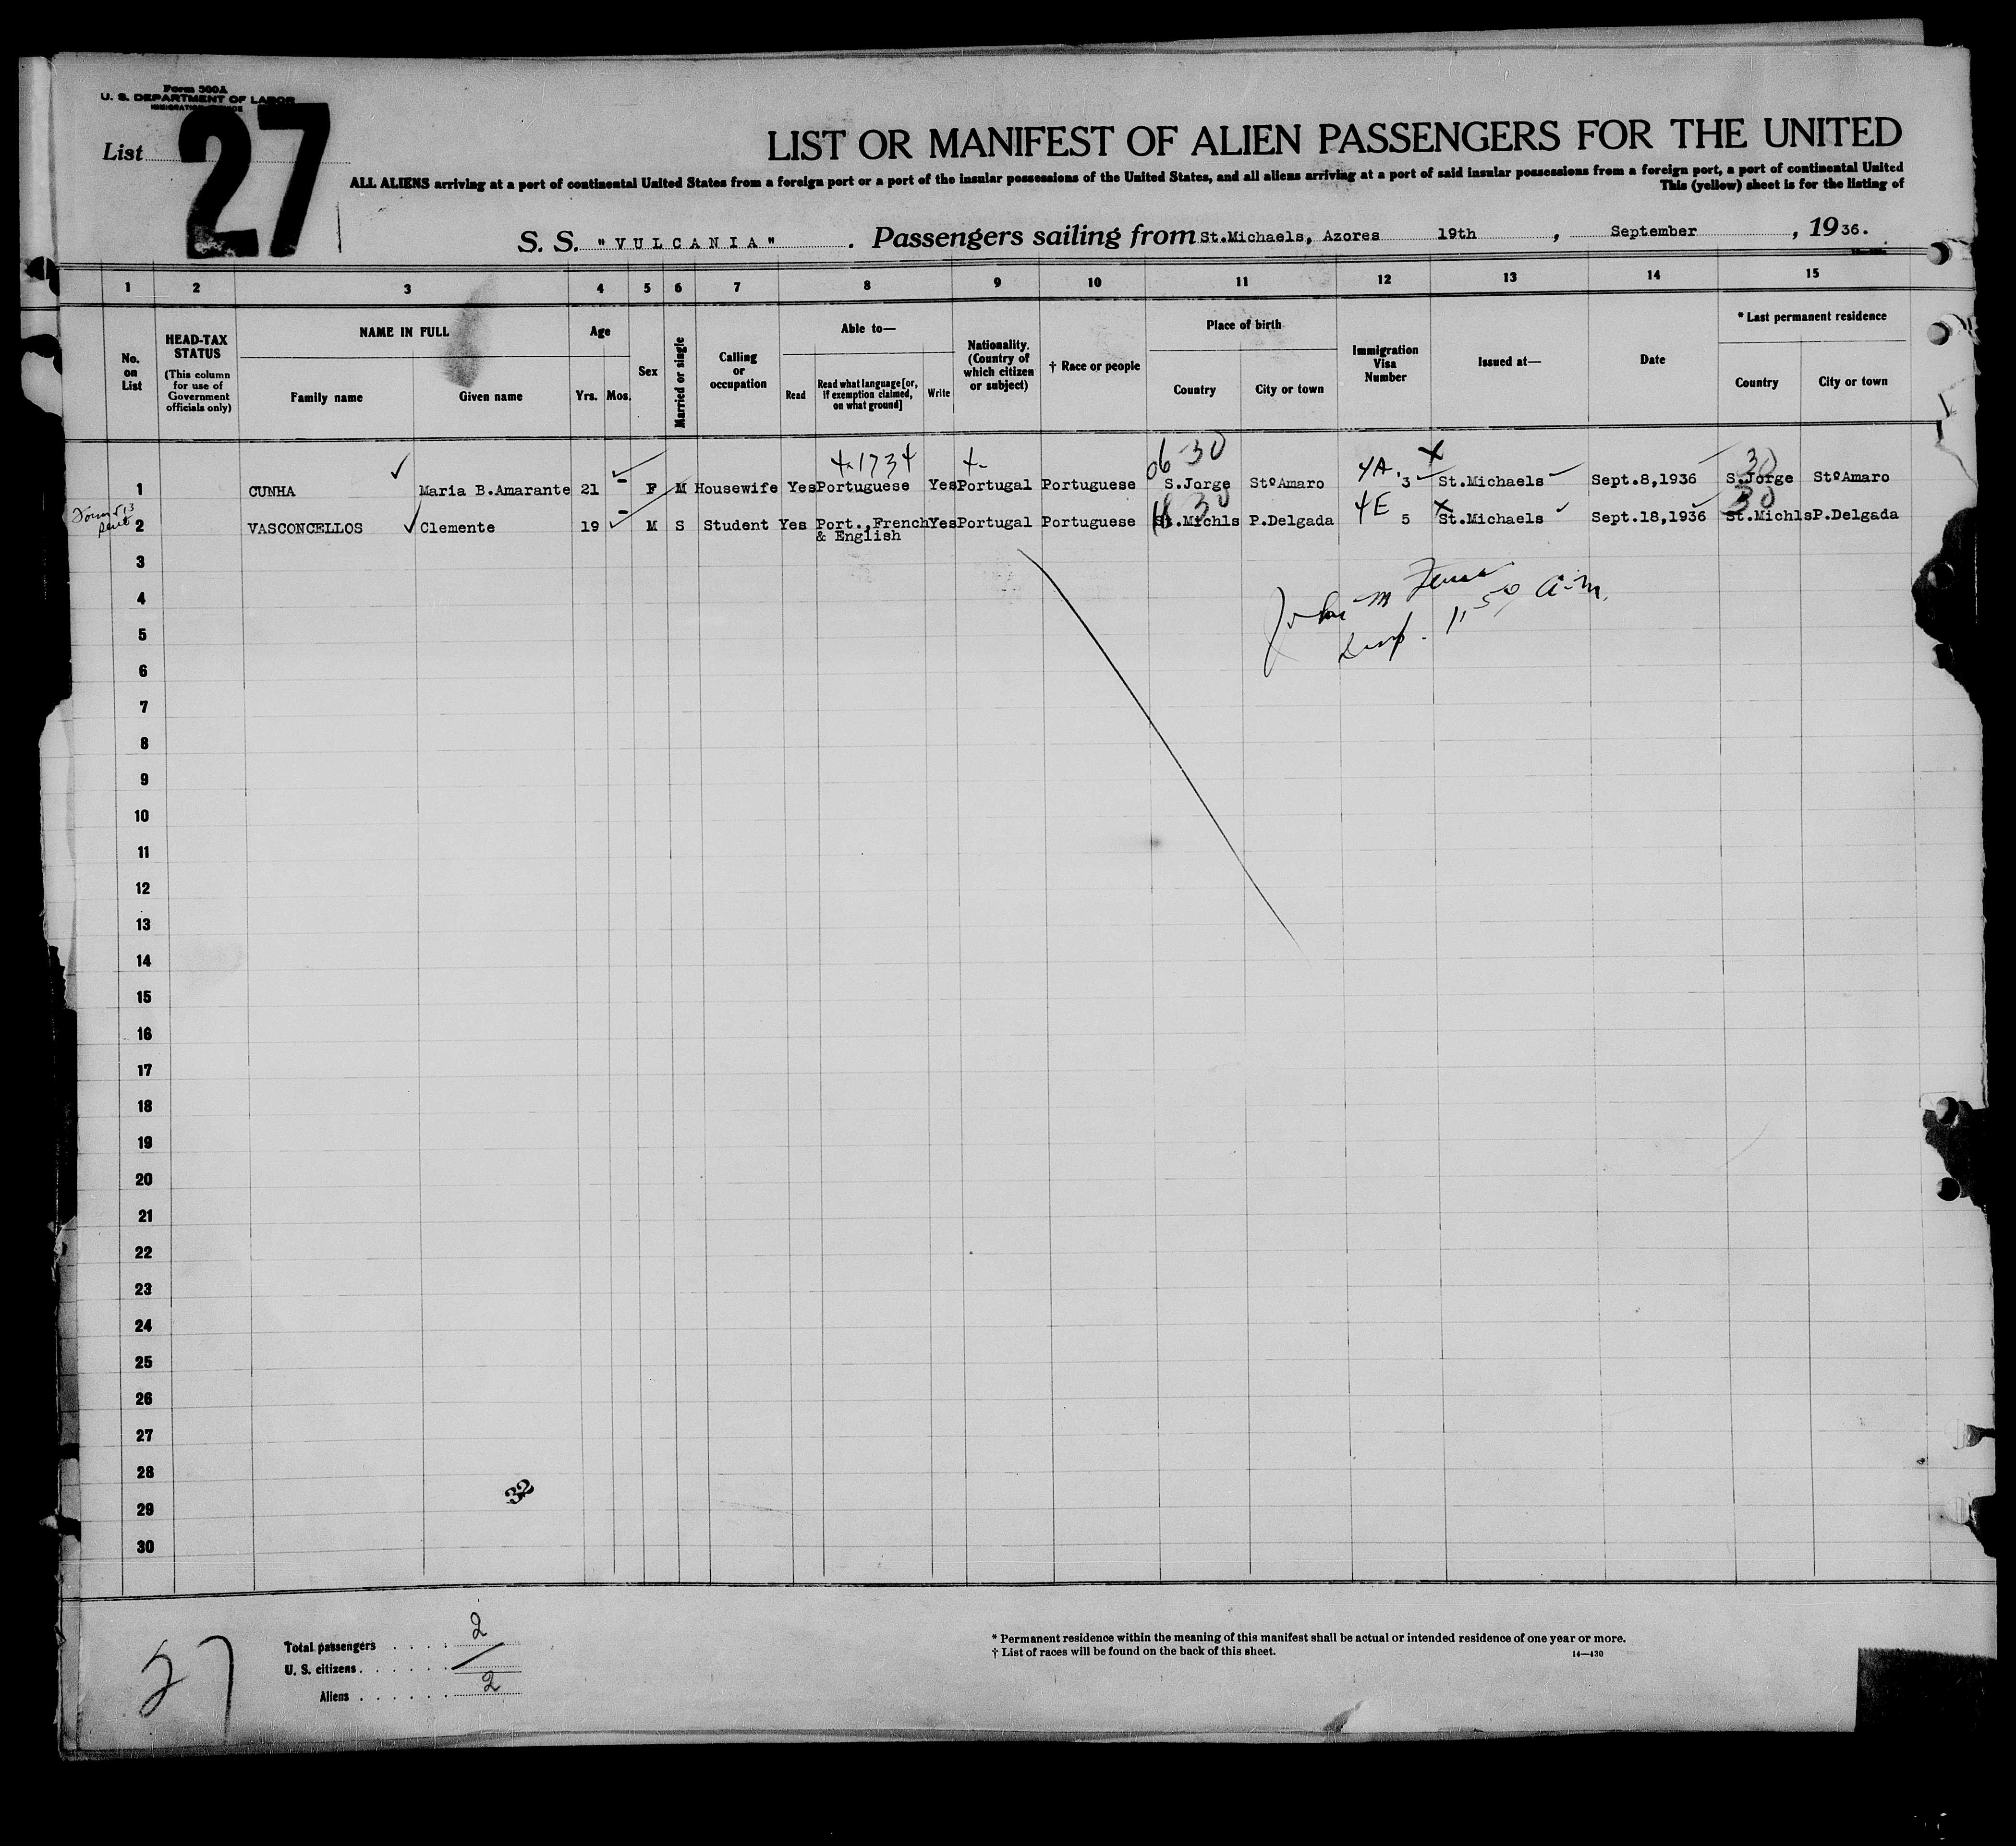 Form 500A
U. S. DEPARTMENT OF LABOR
IMMIGRATION SERVICE
List 27
LIST OR MANIFEST OF ALIEN PASSENGERS FOR THE UNITED
ALL ALIENS arriving at a port of continental United States from a foreign port or a port of the insular possessions of the United States, and all aliens arriving at a port of said insular possessions from a foreign port, a port of continental United
This (yellow) sheet is for the listing of
S. S. "VULCANIA". Passengers sailing from St.Michaels, Azores 19th, September, 1936.
1 2 3 4 5 6 7 8 9 10 11 12 13 14 15
No. on List
HEAD-TAX STATUS
(This column for use of Government officials only)
NAME IN FULL
Family name Given name
Age
Yrs. Mos.
Sex
Married or single
Calling or occupation
Able to—
Read Read what language [or, if exemption claimed, on what ground] Write
Nationality. (Country of which citizen or subject)
† Race or people
Place of birth
Country City or town
Immigration Visa Number
Issued at—
Date
* Last permanent residence
Country City or town
4-1734 4- 06 30 4A X 30
1 CUNHA Maria B.Amarante 21 - F M Housewife Yes Portuguese Yes Portugal Portuguese S.Jorge StºAmaro 3 St.Michaels Sept.8,1936 S.Jorge StºAmaro
30 4E X 30
2 VASCONCELLOS Clemente 19 - M S Student Yes Port.,French Yes Portugal Portuguese St.Michls P.Delgada 5 St.Michaels Sept.18,1936 St.Michls P.Delgada
& English
3
4
John M
5
Insp. 11 50 a.m.
6
7
8
9
10
11
12
13
14
15
16
17
18
19
20
21
22
23
24
25
26
27
28
29
32
30
27
Total passengers . . . . 2
U. S. citizens . . . . . . /
Aliens . . . . . . . 2
* Permanent residence within the meaning of this manifest shall be actual or intended residence of one year or more.
† List of races will be found on the back of this sheet.
14—430